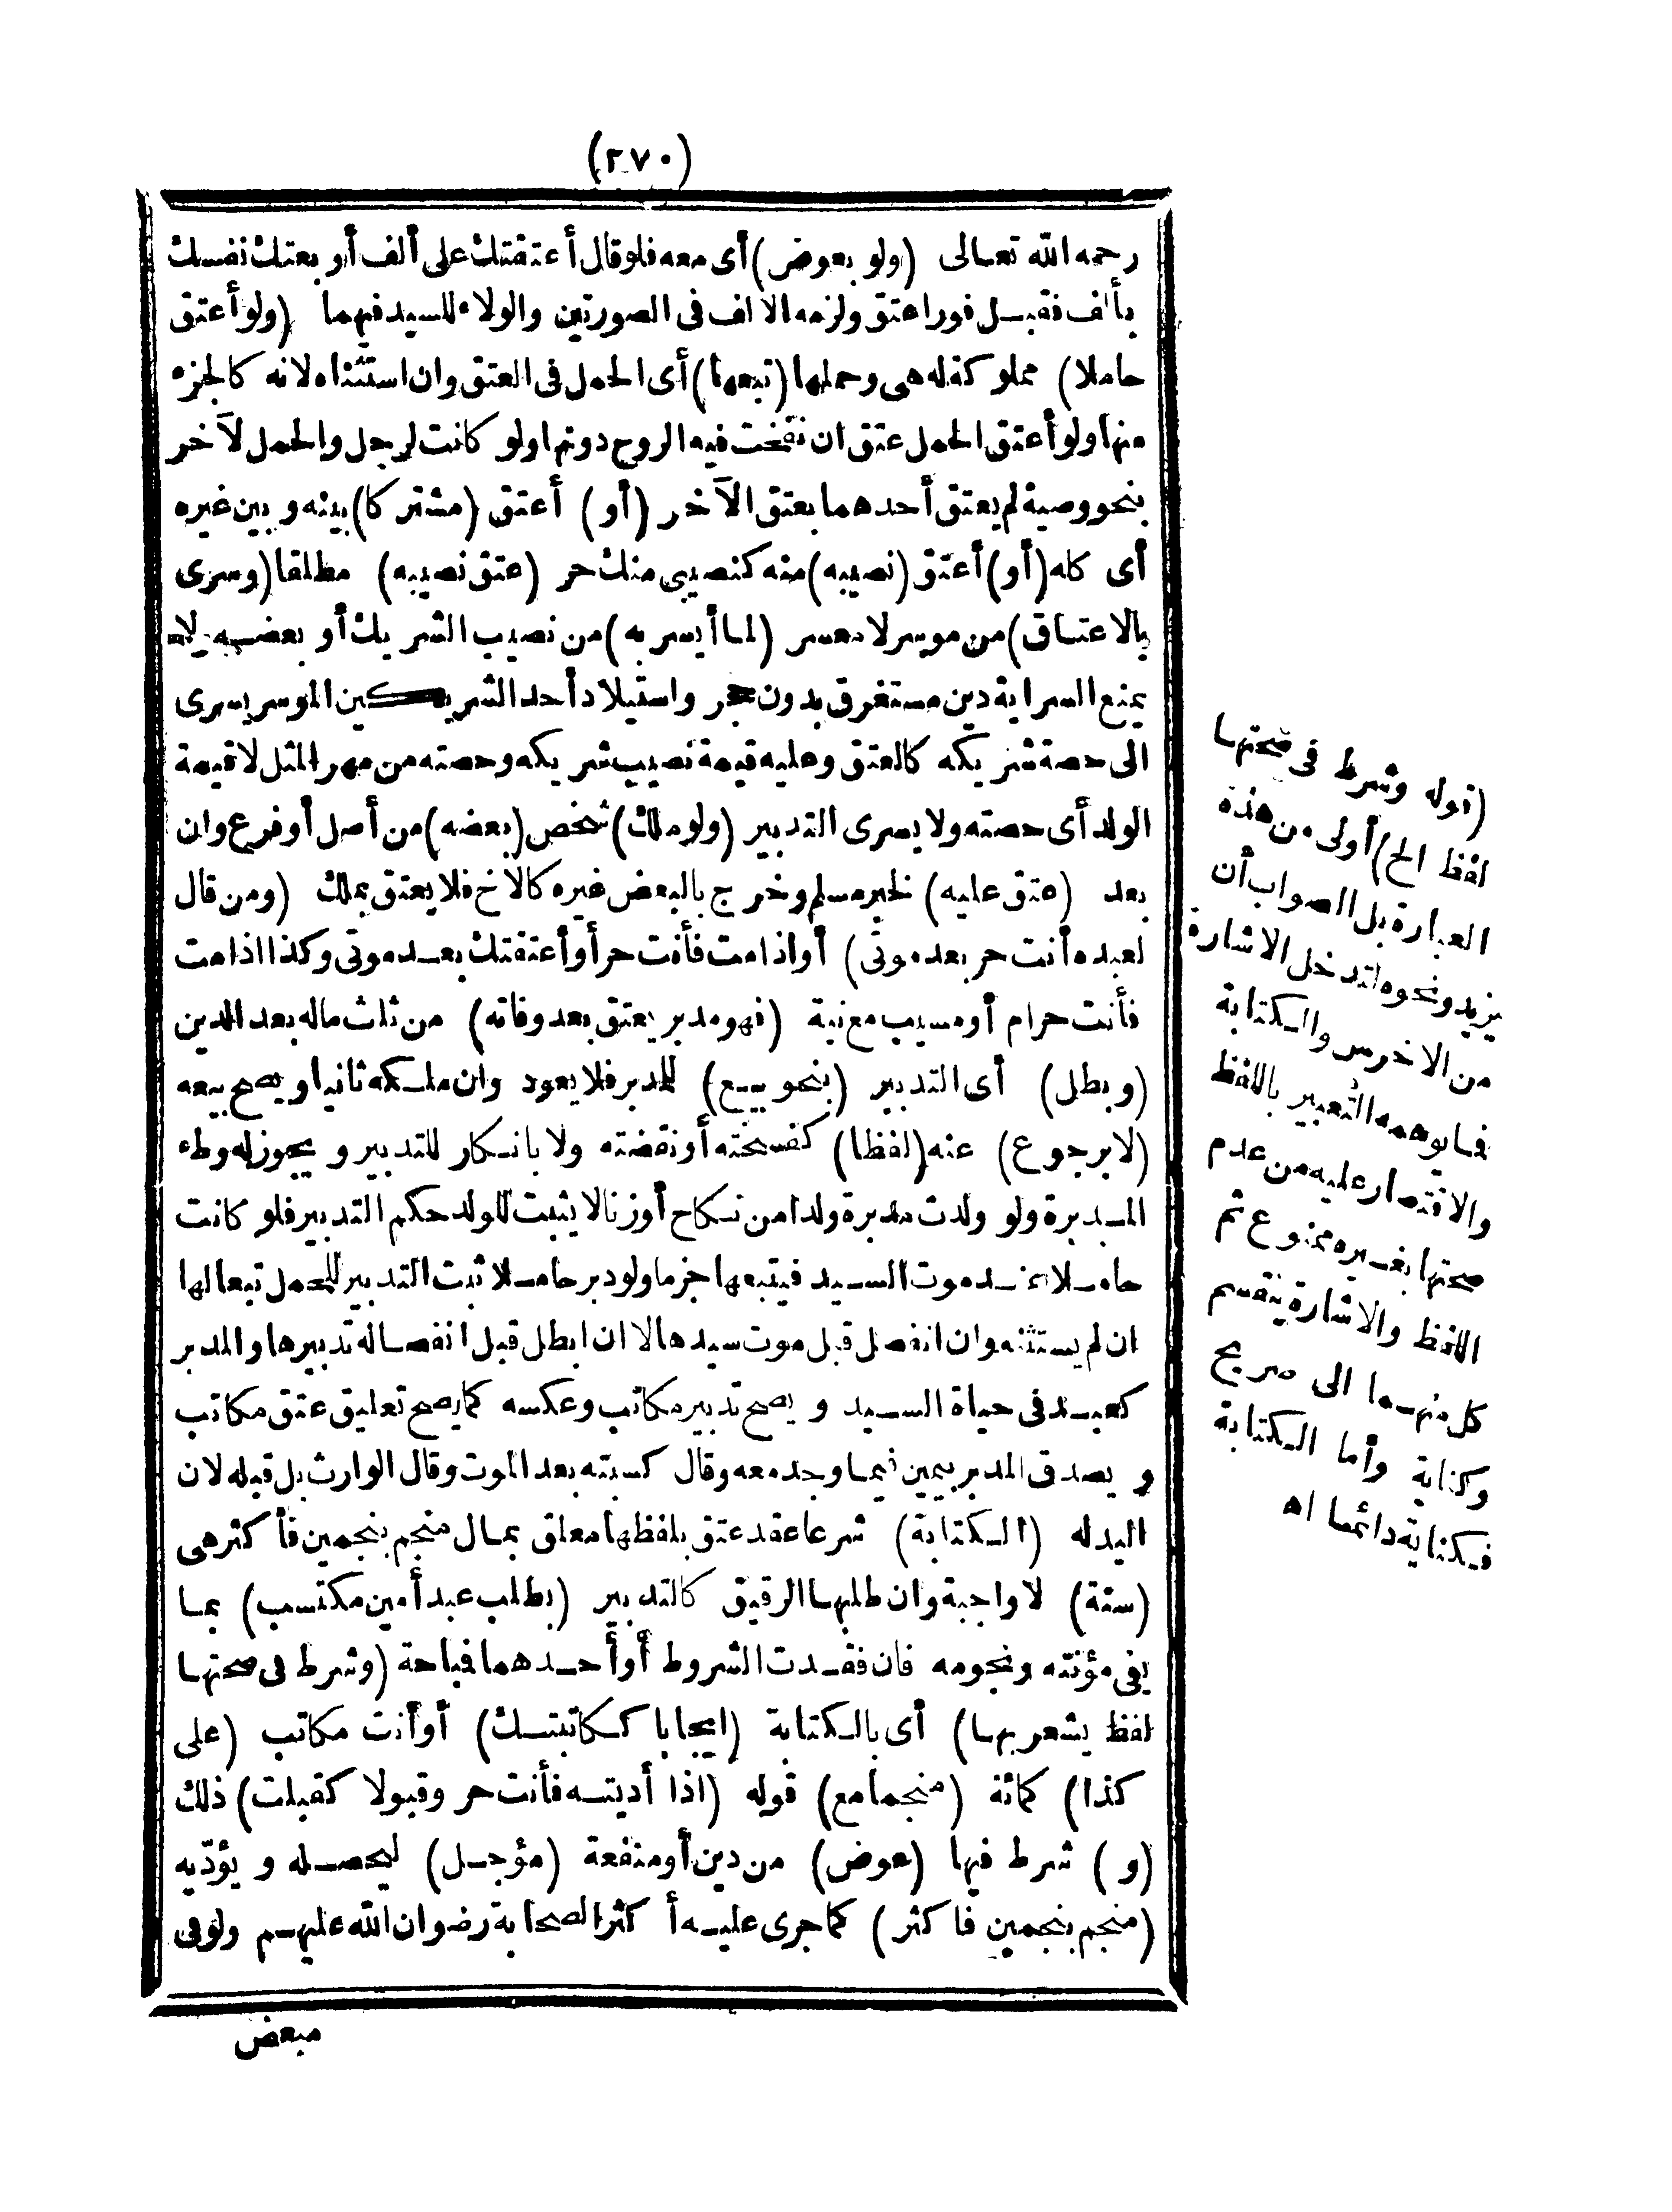 (٢٧٠)
رحمه الله تعالى (ولو بعوض) أى معه فلو قال أعتقتك على ألف أو بعتك نفسك
بألف فقبل فورا عتق ولزمه الالف فى الصورتين والولاء للسيد فيهما (ولو أعتق
حاملا) مملوكة له هى وحملها (تبعها) أى الحمل فى العتق وان استثناه لانه كالجزء
منها ولو أعتق الحمل عتق ان نفخت فيه الروح دونها ولو كانت لرجل والحمل لآخر
بنحو وصية لم يعتق أحدهما بعتق الآخر (أو) أعتق (مشتركا) بينه وبين غيره
أى كله (أو) أعتق (نصيبه) منه كنصيبى منك حر (عتق نصيبه) مطلقا (وسرى
بالاعتاق) من موسر لا معسر (لما أيسر به) من نصيب الشريك أو بعضه ولا
يمنع السراية دين مستغرق بدون حجر واستيلاد أحد الشريكين الموسر يسرى
الى حصة شريكه كالعتق وعليه قيمة نصيب شريكه وحصته من مهر المثل لا قيمة
الولد أى حصته ولا يسرى التدبير (ولو ملك) شخص (بعضه) من أصل أو فرع وان
بعد (عتق عليه) لخبر مسلم وخرج بالبعض غيره كالاخ فلا يعتق بملك (ومن قال
لعبده أنت حر بعد موتى) أو اذا مت فأنت حر أو أعتقتك بعد موتى وكذا اذا مت
فأنت حرام أو مسيب مع نية (فهو مدبر يعتق بعد وفاته) من ثلث ماله بعد الدين
(وبطل) أى التدبير (بنحو بيع) للمدبر فلا يعود وان ملكه ثانيا ويصح بيعه
(لا برجوع) عنه (لفظا) كفسخته أو نقضته ولا بانكار للتدبير ويجوز له وطء
المدبرة ولو ولدت مدبرة ولدا من نكاح أو زنا لا يثبت للولد حكم التدبير فلو كانت
حاملا عند موت السيد فيتبعها جزما ولو دبر حاملا ثبت التدبير للحمل تبعا لها
ان لم يستثنه وان انفصل قبل موت سيدها الا ان ابطل قبل انفصاله تدبيرها والمدبر
كعبد فى حياة السيد ويصح تدبير مكاتب وعكسه كما يصح تعليق عتق مكاتب
ويصدق المدبر بيمين فيما وجد معه وقال كسبته بعد الموت وقال الوارث بل قبله لان
اليد له (الكتابة) شرعا عقد عتق بلفظها معلق بمال منجم بنجمين فأكثر هى
(سنة) لا واجبة وان طلبها الرقيق كالتدبير (بطلب عبد أمين مكتسب) بما
يفى مؤنته ونجومه فان فقدت الشروط أو أحدهما فباحة (وشرط فى صحتها
لفظ يشعر بها) أى بالكتابة (ايجابا ككاتبتك) أو أنت مكاتب (على
كذا) كمائة (منجما مع) قوله (اذا أديته فأنت حر وقبولا كقبلت) ذلك
(و) شرط فيها (عوض) من دين أو منفعة (مؤجل) ليحصله ويؤدّيه
(منجم بنجمين فاكثر) كما جرى عليه أكثر الصحابة رضوان الله عليهم ولو فى
مبعض
(قوله وشرط فى صحتها
لفظ الخ) أولى من هذه
العبارة بل الصواب أن
يزيد ونحوه لتدخل الاشارة
من الاخرس والكتابة
فما يوهمه التعبير باللفظ
والاقتصار عليه من عدم
صحتها بغيره ممنوع ثم
اللفظ والاشارة ينقسم
كل منهما الى صريح
وكناية وأما الكتابة
فكناية دائما اه